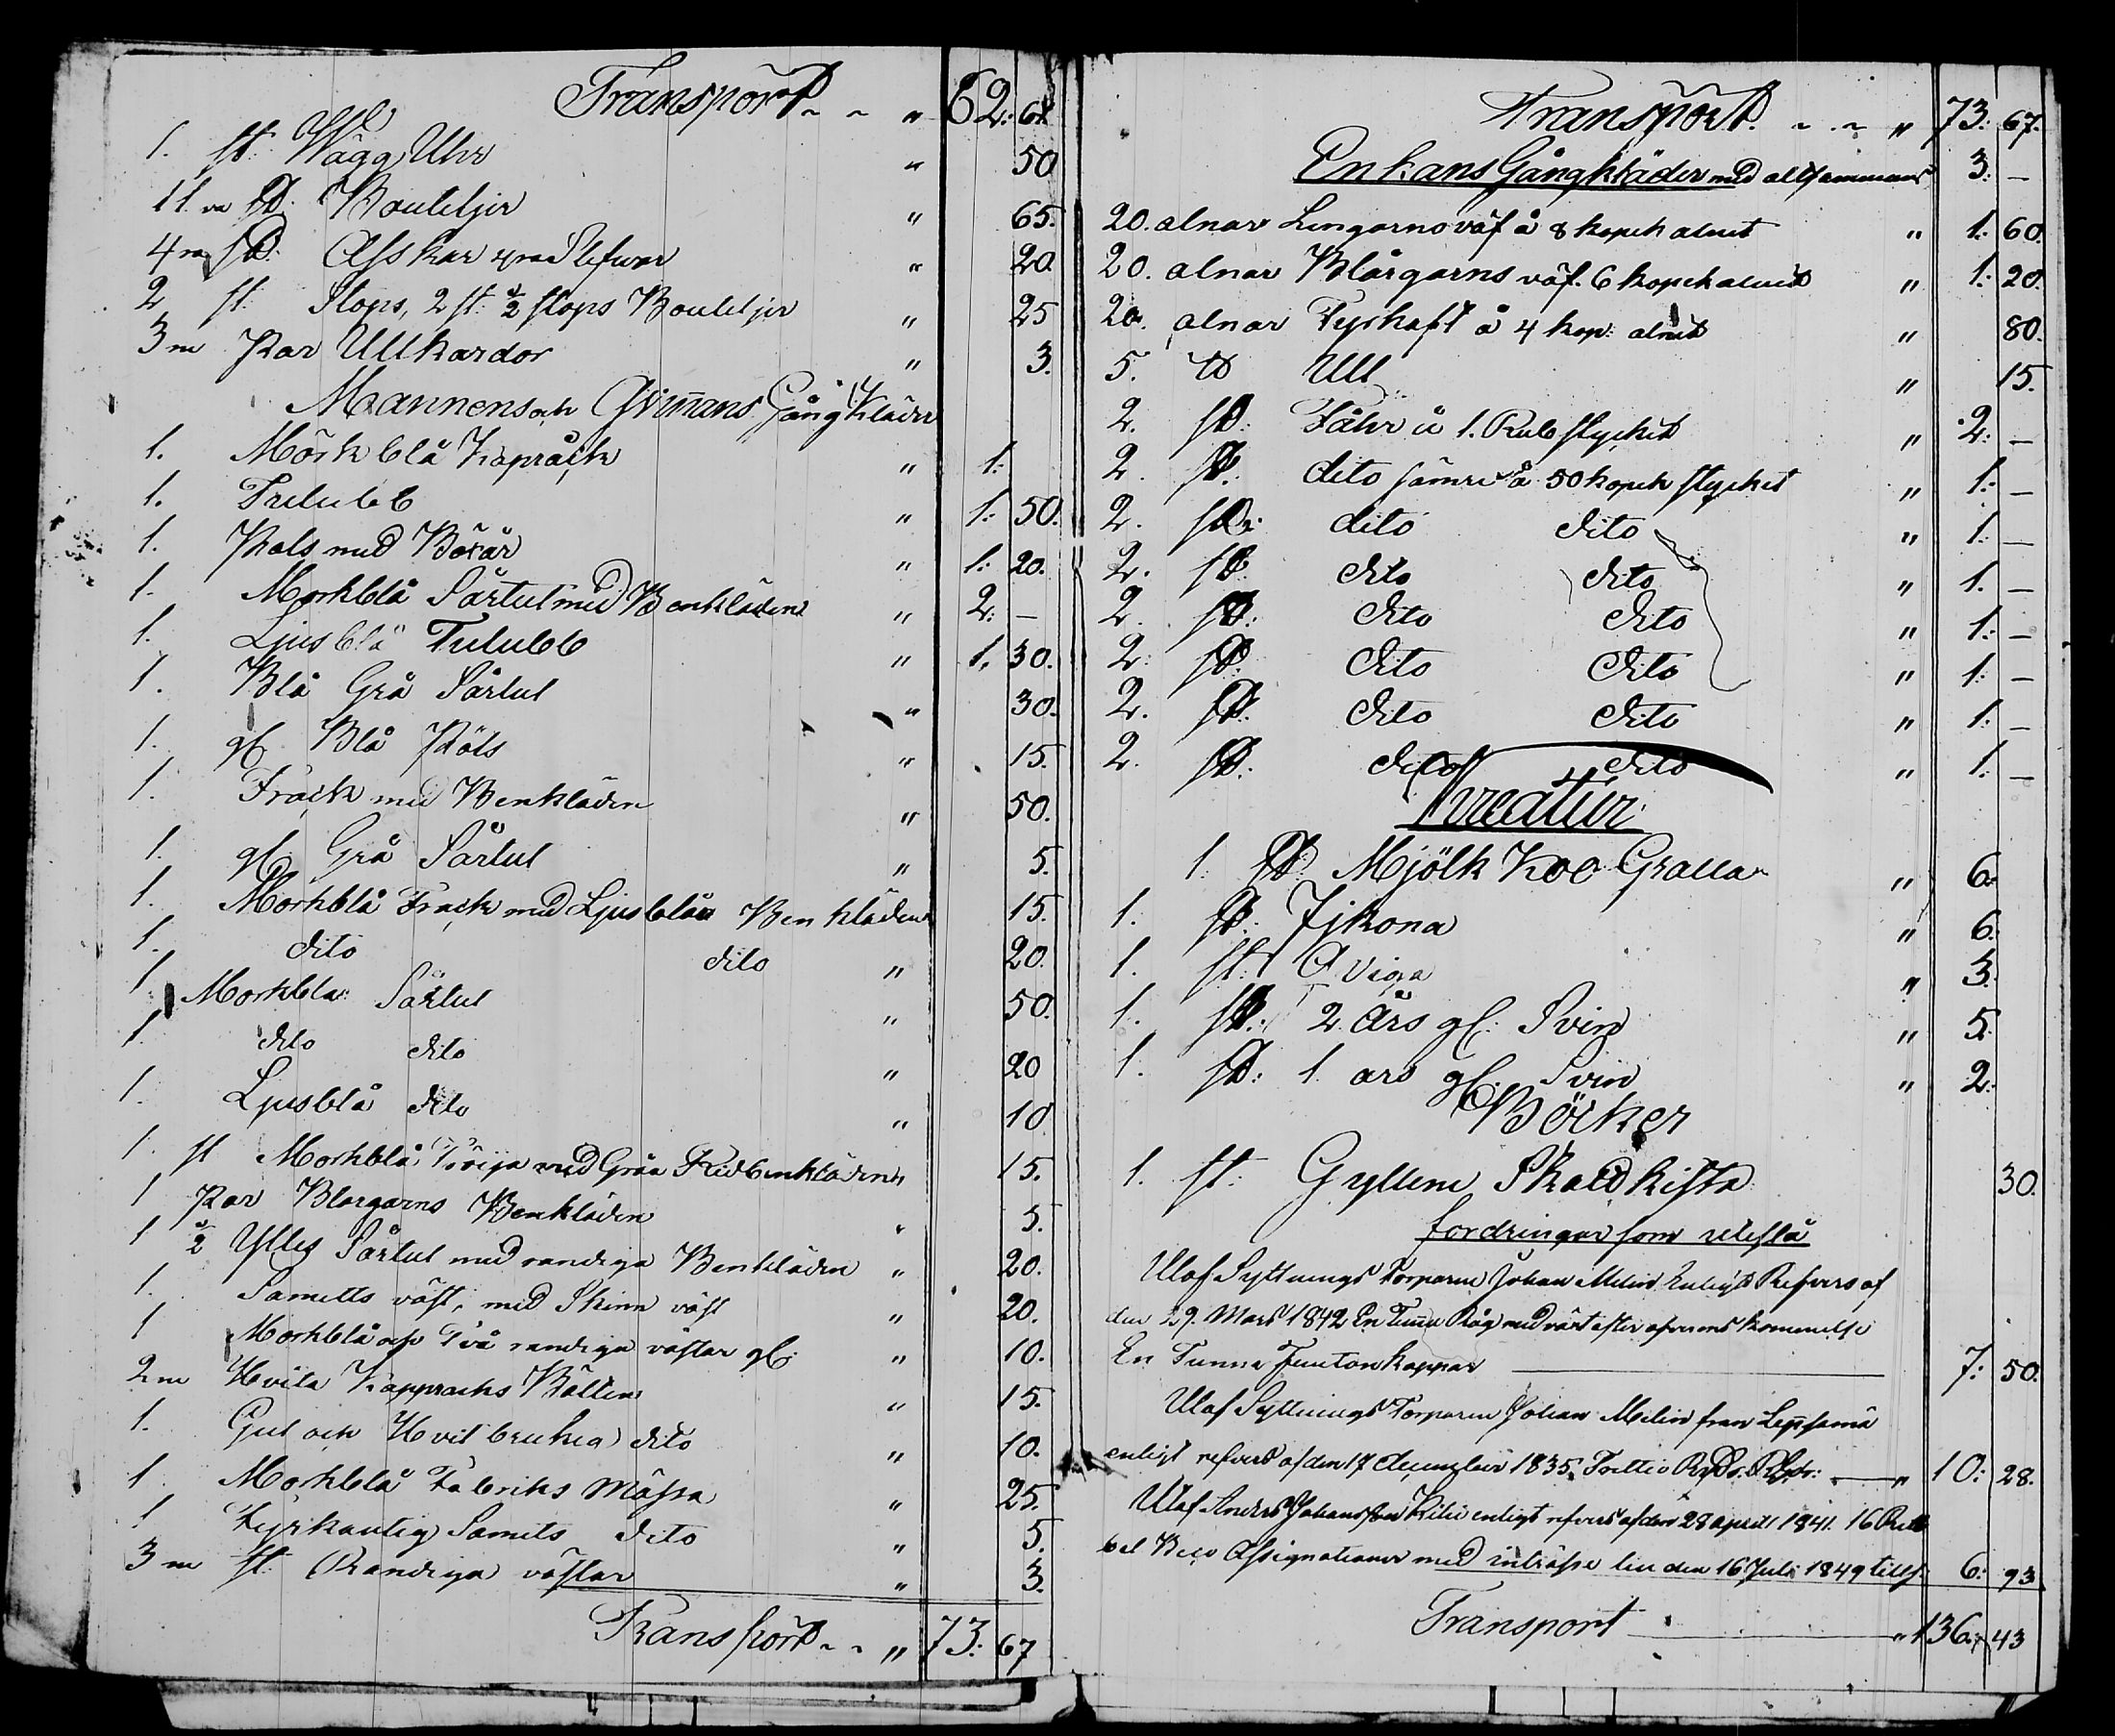 Transport - - " 62: 61.
1. st. Vägg Uhr " 50
11. va st. Bouteljer " 65.
4ra st. Asskar " 20.
2 st. Stops, 2 st: 1/2 stops Bouteljer " 25
3ne Par Ullkardor " 3.
Mannens och Gångkläder
1. Mörkblå Kapråck " 1:
1. Tulubb " 1: 50.
1. Pals med " 1: 20.
1. Morkblå Sårtut med Benkläder " 2: —
1. Ljusblå Tulubb " 1. 30.
1. Blå Grå Sårtut " 30.
1. gl Blå Päls " 15.
1. Frack med Benkläder " 50.
1. gl. Grå Sårtut " 5.
1. Morkblå Frack med Ljusblåa Benkläder 15.
1. dito dito " 20.
1. Morkbla Sårtut " 50.
1. dito dito " 20
1. Ljusblå dito " 10
1. st Morkblå Tröija med Gråa Ridbenkläder " 15.
1 Par Blargarns Benkläder " 5.
1 1/2 Ylles Sårtut med randiga Benkläder " 20.
1. Samets väst, med Skinn väst " 20.
1 Morkblå och Två randiga västar gl. " 10.
2ne Hvita Kappracks Bälten " 15.
1. Gul och Hvit brukig dito " 10.
1 Morkblå Fabriks Mössa " 25.
1 Fyrkantig Samets dito " 5.
3ne st. Randiga västar " 3.
Transport - - " 73: 67
Transport - - " 73: 67.
Enkans Gångkläder med alltsammans 3: —
20. alnar Lingarns väf å 8 kopek alnet " 1: 60.
20. alnar Blårgarns väf. 6 kopek alnet " 1: 20.
20. alnar Tyskaft å 4 kop: alnet " 80.
5. ℔ Ull " 15.
2. st: Fåhr å 1. Rub stycket " 2: —
2. st. dito sämre å 50 kopek stycket " 1: —
2. st. dito dito " 1: —
2. st. dito dito " 1. —
2. st. dito dito " 1: —
2. st. dito dito " 1: —
2. st. dito dito " 1: —
2. st. dito dito " 1: —
Kreatur
1. st. Mjölk Koo Gralla " 6:
1. st. " 6:
1. st. Qviga " 3:
1. st. 2. Års gl. Svin " 5.
1. st: 1. ars gl. Svin " 2:
Böcker
1. st: Gyllene Skattkista 30.
fordringar som utestå
Utaf Syttnings Torparen Johan Melin Enligt Refvers af
den 29. Mars 1842 En Tunna Råg
En Tunna Femton kappar 7: 50.
Utaf Syttnings Torparen Johan Melin från
enligt refvers af den 17 december 1835. Trettio " 10: 28.
Utaf Anders Johansson enligt refvers af den 28 april 1841. 16 Rub
Assignationer med intrásse till den 16 Juli 1849 tills. 6: 93
Transport " 136: 43